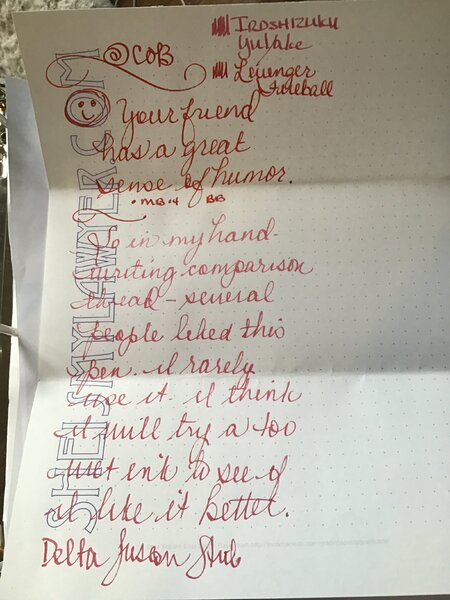 IROSHIZUKU
YuYake
@COB
Levenger
Fireball
SHEISMYLAWYER.COM
Your friend
has a great
sense of humor.
BB
So in my hand-
writing comparison
thread - several
people liked this
pen. I rarely
use it. I think
I will try a too
wet ink to see if
I like it better.
Delta Fusion Stub